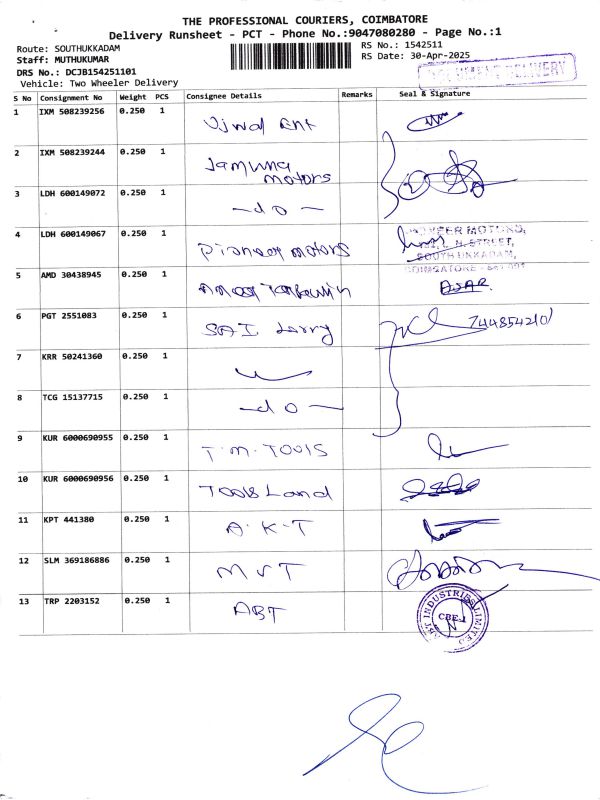 THE PROFESSIONAL COURIERS, COIMBATORE
Delivery Runsheet - PCT - Phone No.:9047080280 - Page No.:1
Route: SOUTHUKKADAM
RS No.: 1542511
Staff: MUTHUKUMAR
RS Date: 30-Apr-2025
DRS No.: DCJB154251101
DOCUMENT DELIVERY
Vehicle: Two Wheeler Delivery
S No Consignment No Weight PCS Consignee Details Remarks Seal & Signature
1 IXM 508239256 0.250 1
2 IXM 508239244 0.250 1 Jamuna motors
3 LDH 600149072 0.250 1 -do-
4 LDH 600149067 0.250 1 Pioneer motors
PIONEER MOTORS,
N. STREET,
SOUTH UKKADAM,
COIMBATORE - 641 001
5 AMD 30438945 0.250 1
6 PGT 2551083 0.250 1 SAI Larry 7448542101
7 KRR 50241360 0.250 1
8 TCG 15137715 0.250 1 -do-
9 KUR 6000690955 0.250 1 T.M. TOOLS
10 KUR 6000690956 0.250 1 Tools Land
11 KPT 441380 0.250 1 A.K.T
12 SLM 369186886 0.250 1 MVT
13 TRP 2203152 0.250 1 ABT
ABT INDUSTRIES LIMITED
CBE-1